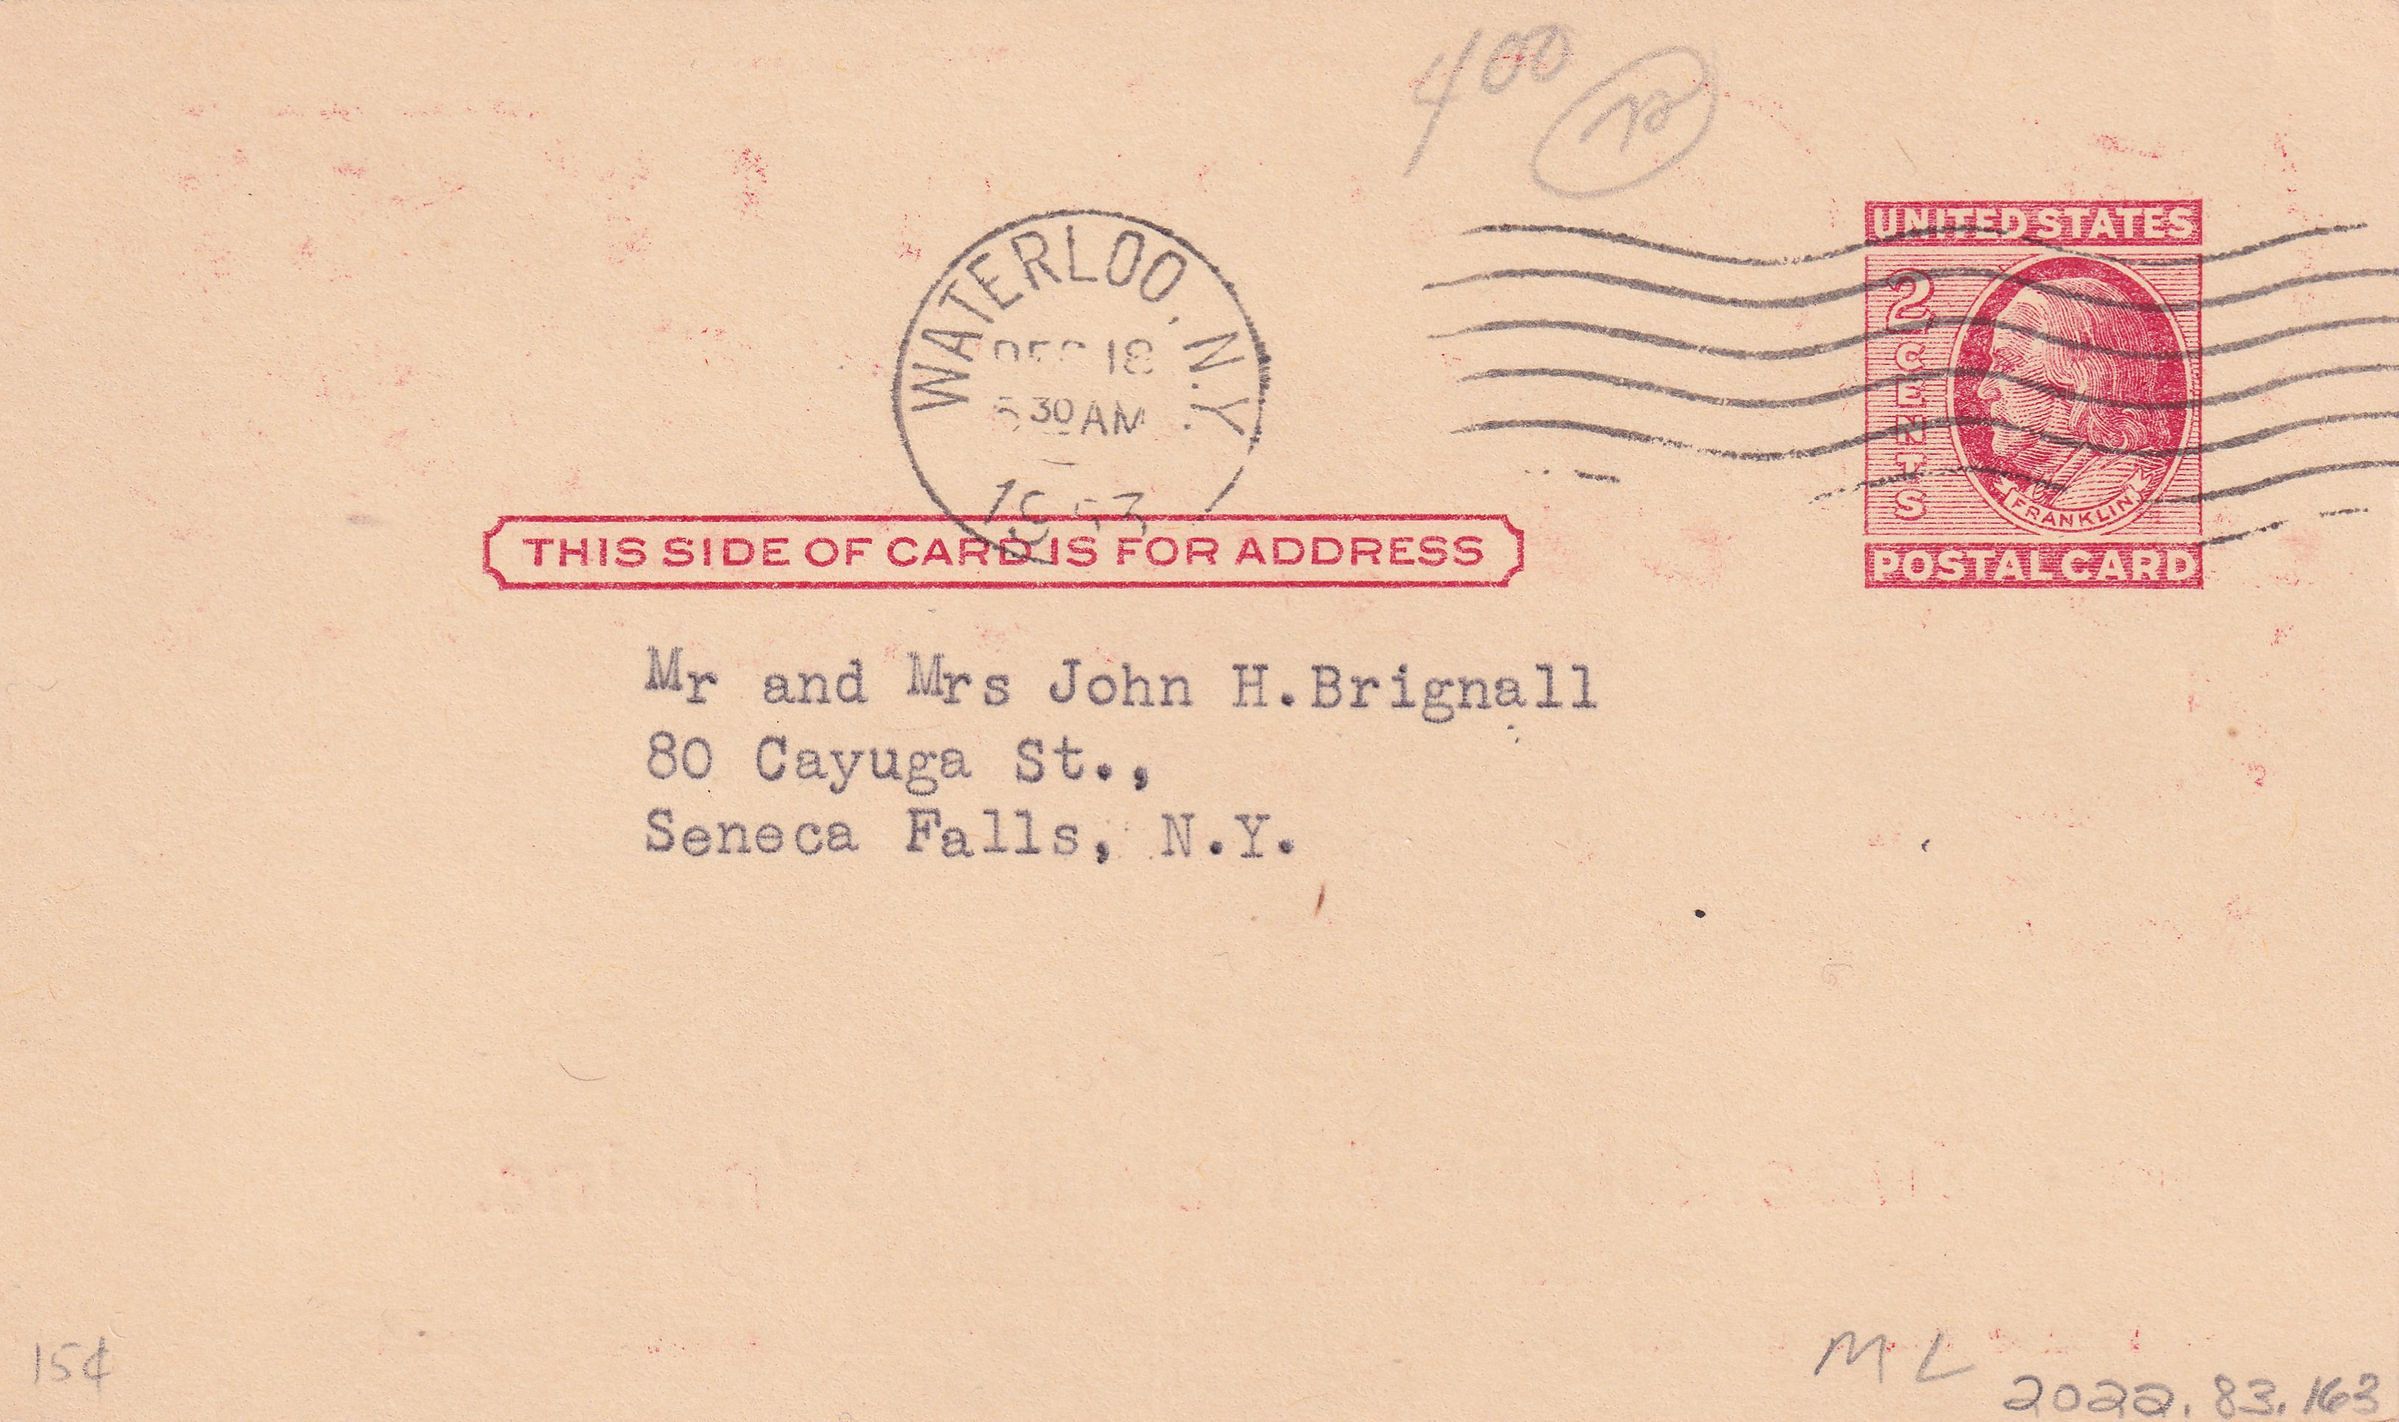 400
UNITED STATES
2 CENTS
FRANKLIN
POSTAL CARD
WATERLOO, N.Y.
DEC 18
30 AM
1953
THIS SIDE OF CARD IS FOR ADDRESS
Mr and Mrs John H.Brignall
80 Cayuga St.,
Seneca Falls, N.Y.
15¢
M L
2022.83.163